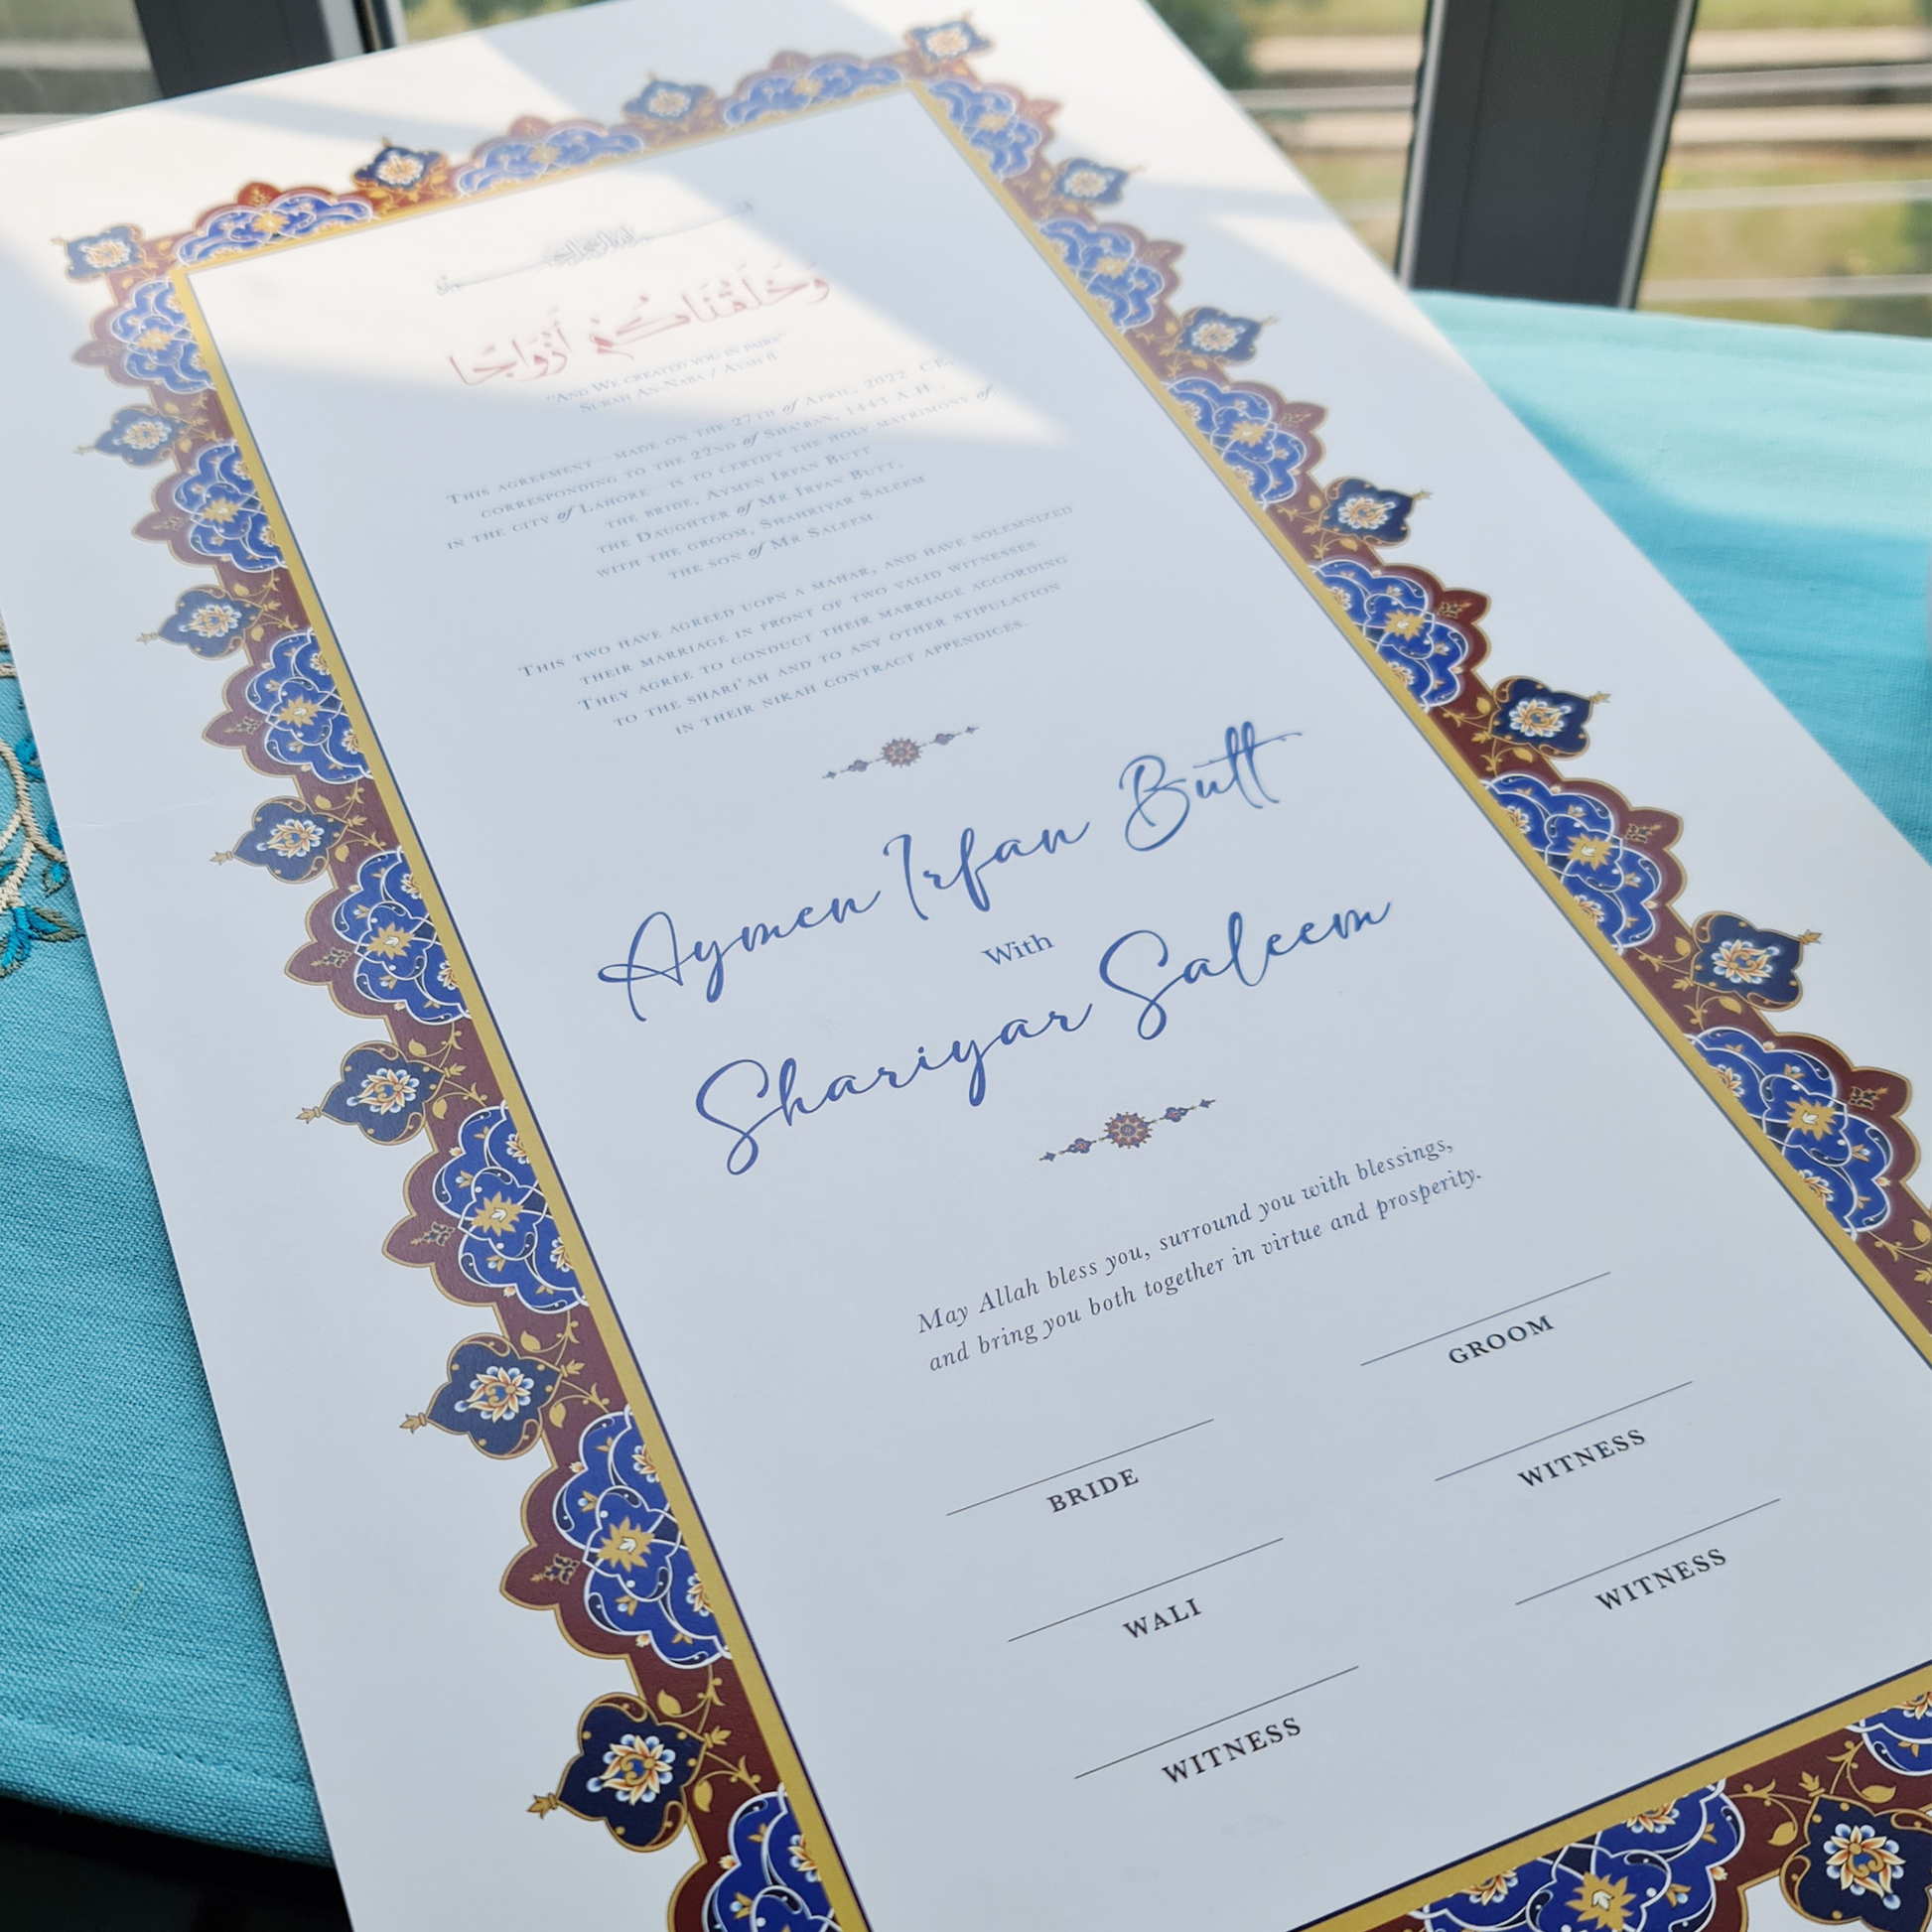 وَخَلَقْنَاكُمْ أَزْوَاجًا
"And We created you in pairs"
Surah An-Naba / Ayah 8
This agreement—made on the 27th of April, 2022 CE,
corresponding to the 22nd of Sha'ban, 1443 A.H.,
in the city of Lahore—is to certify the holy matrimony of
the bride, Aymen Irfan Butt
the Daughter of Mr Irfan Butt,
with the groom, Shahriyar Saleem
the son of Mr Saleem.
This two have agreed uopn a mahar, and have solemnized
their marriage in front of two valid witnesses
They agree to conduct their marriage according
to the Shari'ah and to any other stipulation
in their nikah contract appendices.
Aymen Irfan Butt
With
Shariyar Saleem
May Allah bless you, surround you with blessings,
and bring you both together in virtue and prosperity.
GROOM
BRIDE
WITNESS
WALI
WITNESS
WITNESS